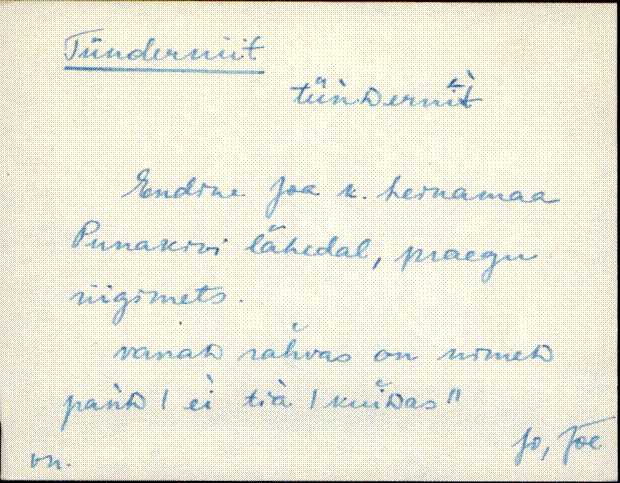 Tünderniit
tüǹDernìt
Endine Joa k. heinamaa
Punakivi lähedal, praegu
riigimets.
vanaD rahvas on nimeD
pańD / ei tiä / kuiDas"
Jo, Jõe
vn.